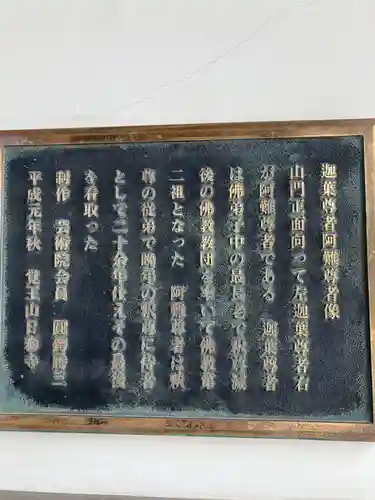 迦葉尊者阿難尊者像
山門正面向って左迦葉尊者右
が阿難尊者である 迦葉尊者
は佛弟子中の最長老で釈尊滅
後の佛教教団を率いて佛教第
二祖となった 阿難尊者は釈
尊の従弟で陶第の釈迦に侍者
として二十余年仕えその最後
を看取った
制作 芸術院会員 圓鍔勝三
平成元年秋 覚王山日泰寺